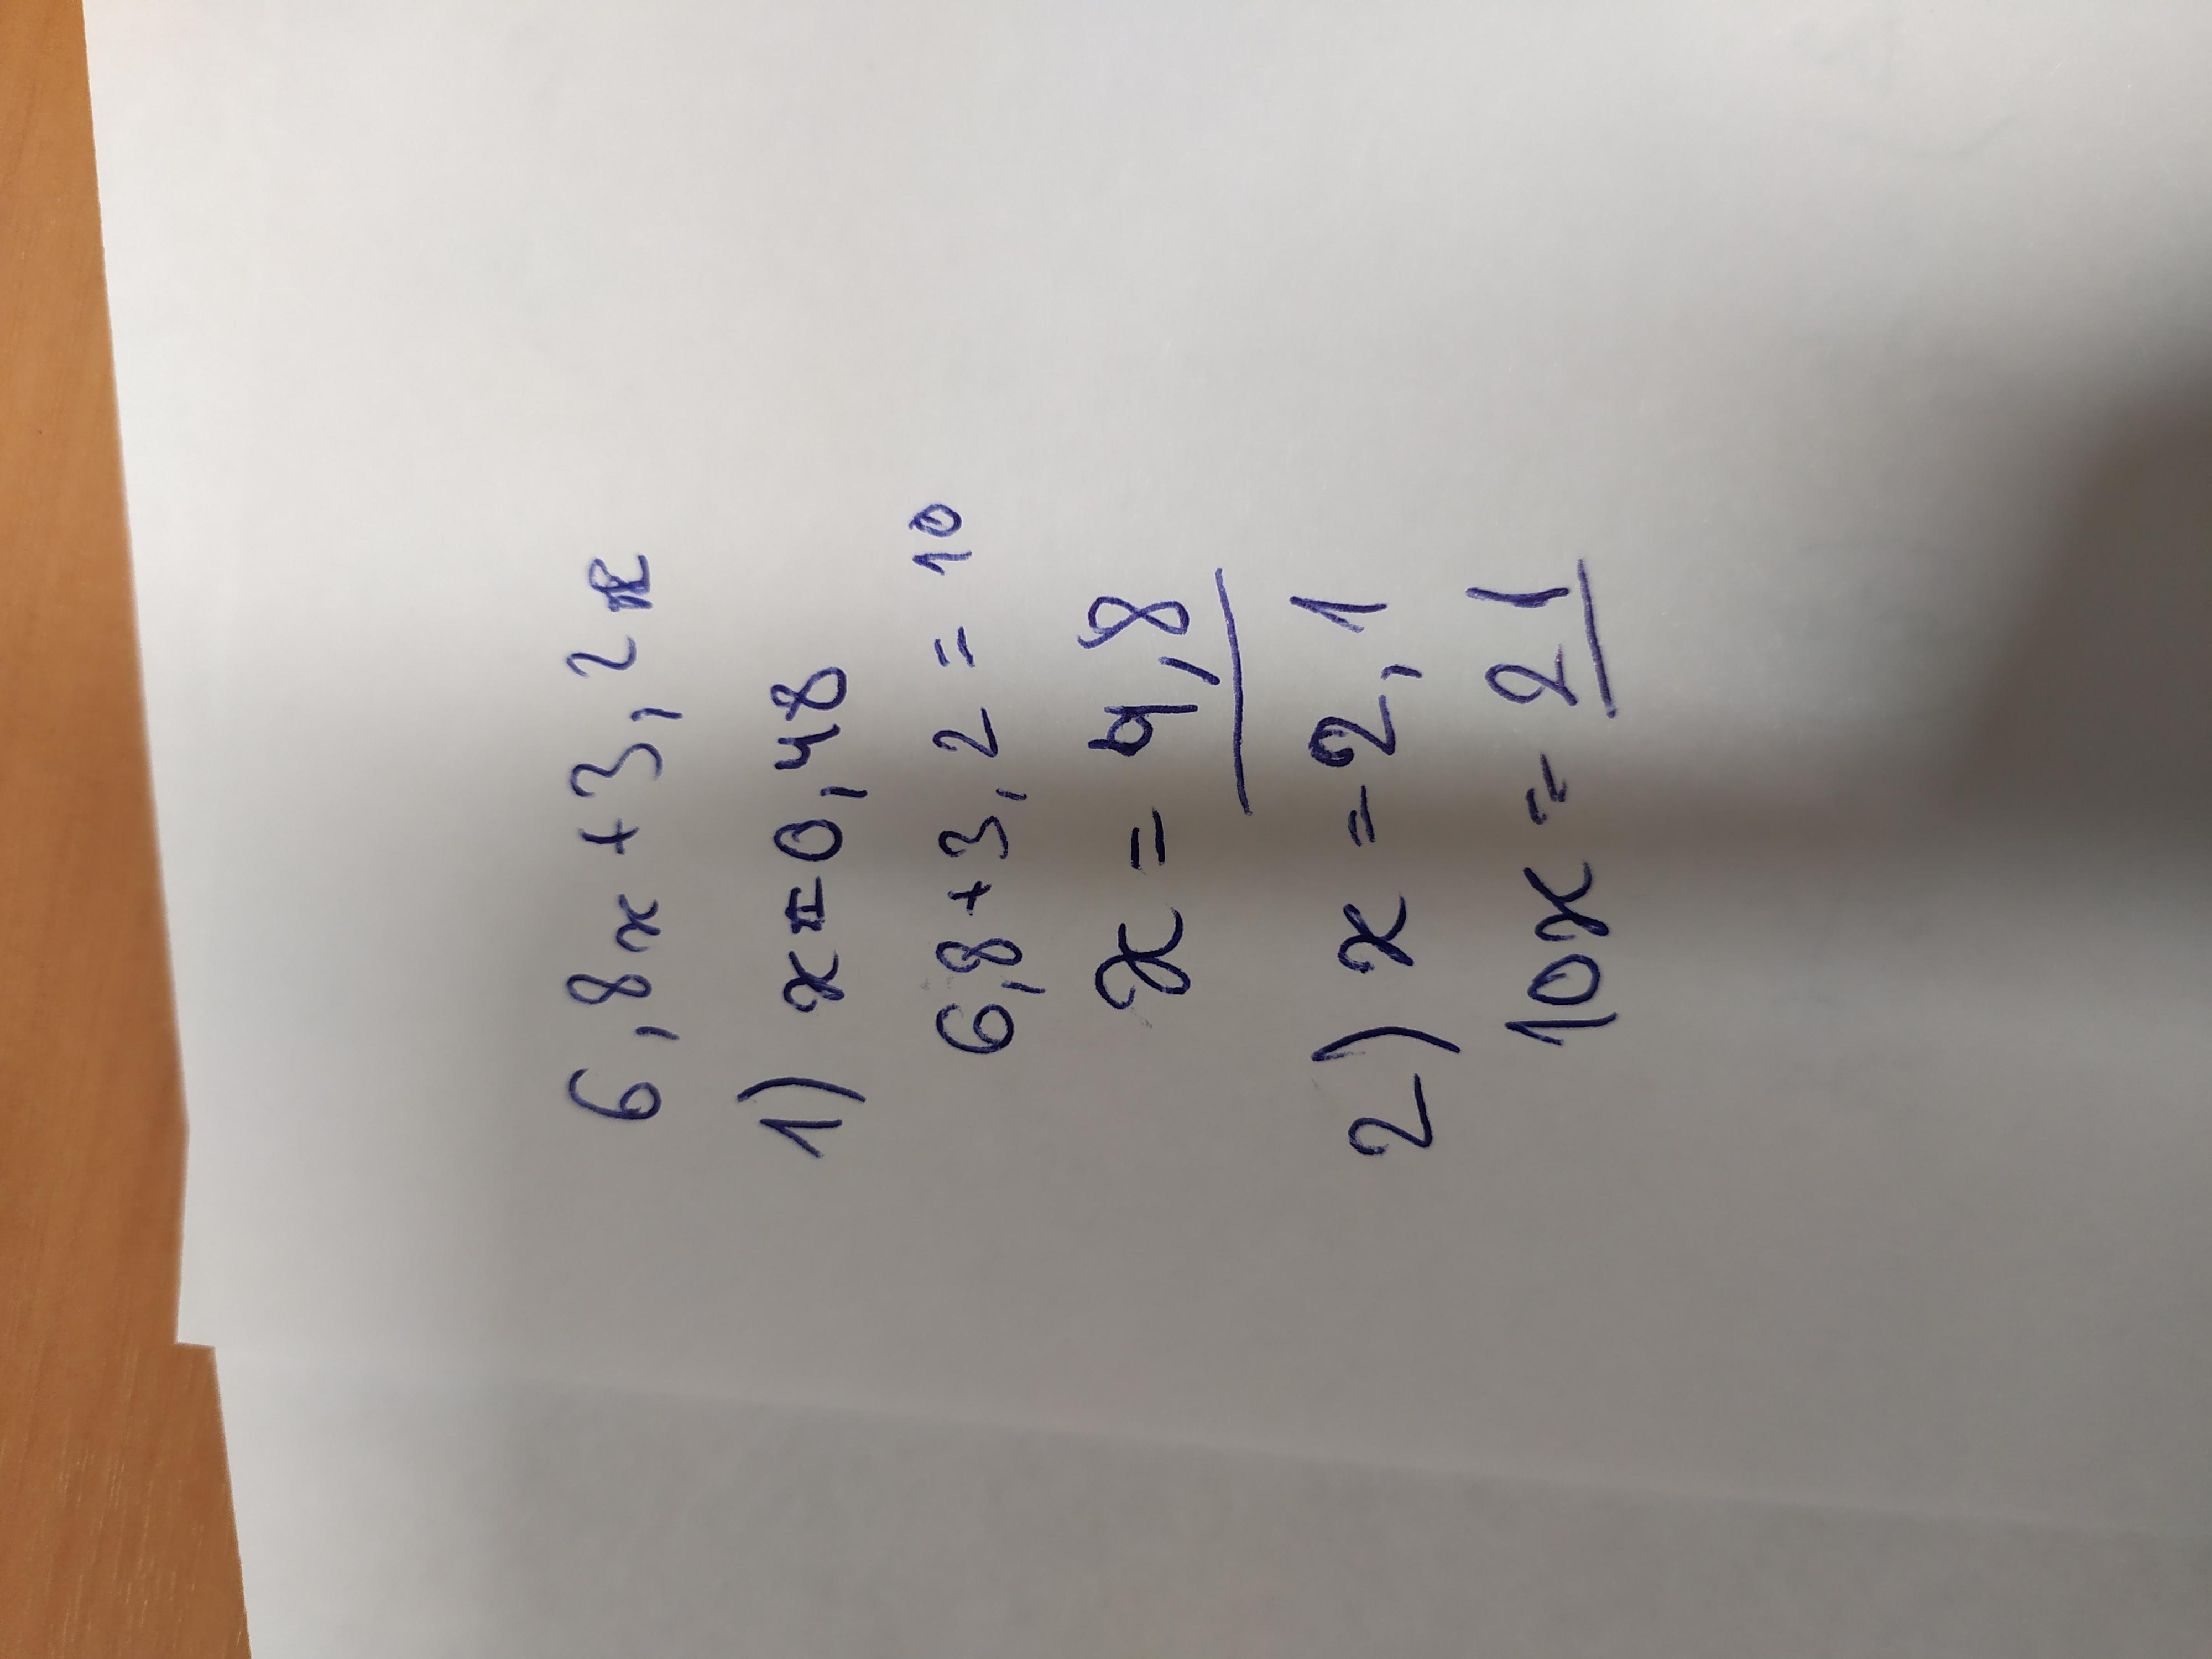 6,8x + 3,2x
1) x = 0,48
6,8 + 3,2 = 10
x = 4,8
2) x = 2,1
10x = 21